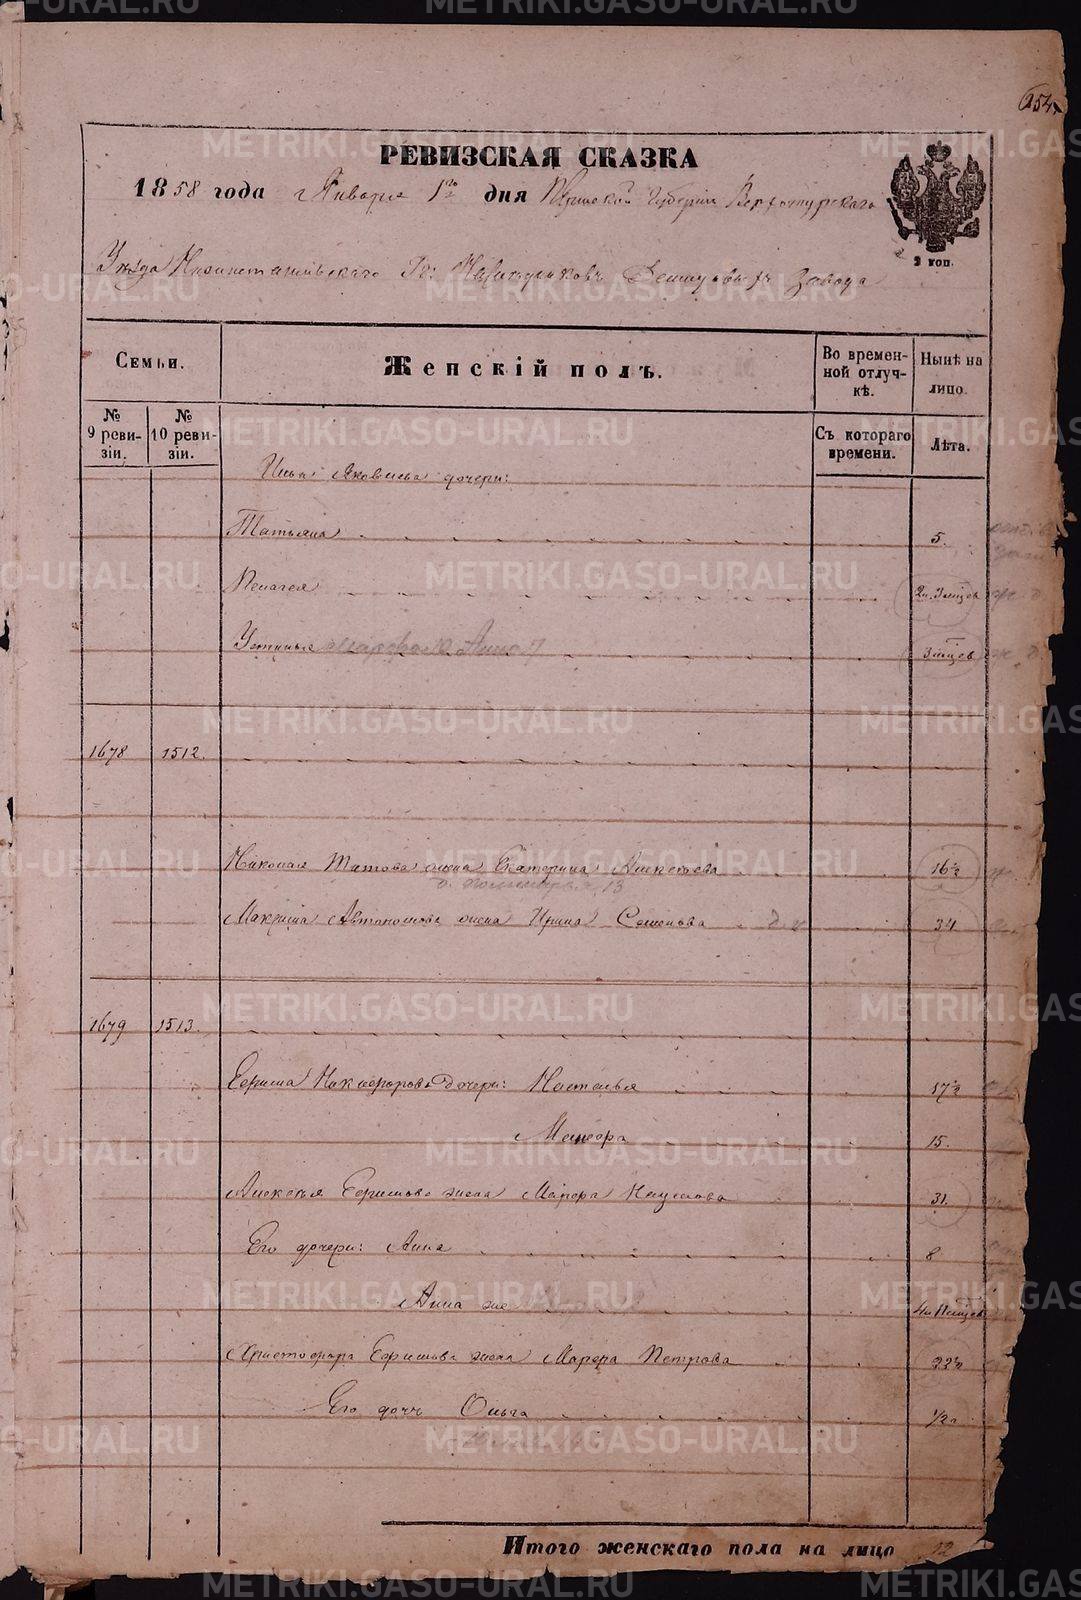 254
РЕВИЗСКАЯ СКАЗКА
1858 года Января 1го дня Пермской Губернии Верхотурскаго
Уѣзда Нижнетагильскаго Гг: Наслѣдниковъ Демидовыхъ Завода
2 коп.
Семьи.
Женскій полъ.
Во временной отлучкѣ.
Нынѣ на лицо.
№ 9 ревизіи.
№ 10 ревизіи.
Съ котораго времени.
Лѣта.
Ильи Яковлева дочери:
Татьяна 5.
Пелагея
Устинья Анна 7 3 мѣсцев
1678 1512.
Николая Титова жена Екатерина Алексѣева 16½
13
Максима Автономова жена Ирина Семенова 34
1679 1513.
Ефима Никифорова дочери: Настасья 17½
Марфа 15.
Алексѣя Ефимова жена Марфа Наумова 31.
Его дочери: Анна 8
Анна же
Христофора Ефимова жена Марфа Петрова 22½
Его дочь Ольга ½
Итого женскаго пола на лицо 12
METRIKI.GASO-URAL.RU